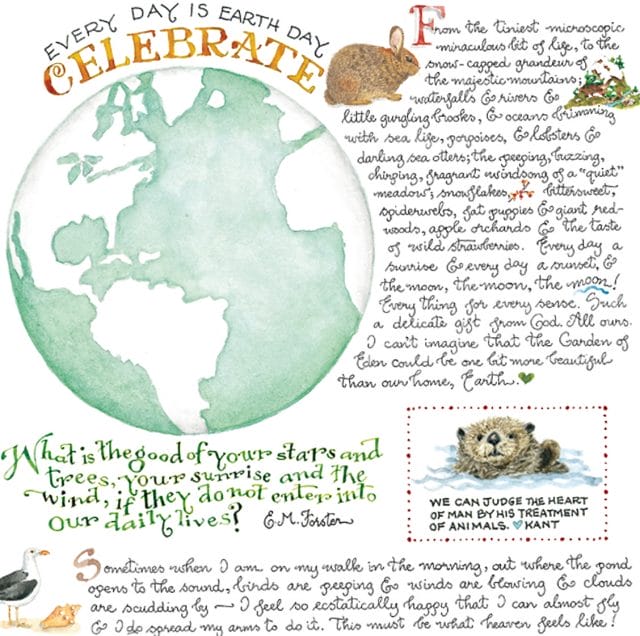 EVERY DAY IS EARTH DAY
CELEBRATE
From the tiniest microscopic
miraculous bit of life, to the
snow-capped grandeur of
the majestic mountains;
waterfalls & rivers &
little gurgling brooks, & oceans brimming
with sea life, porpoises, & lobsters &
darling sea otters; the peeping, buzzing,
chirping, fragrant windsong of a "quiet"
meadow; snowflakes, bittersweet,
spiderwebs, fat puppies & giant red-
woods, apple orchards & the taste
of wild strawberries. Every day a
sunrise & every day a sunset, &
the moon, the moon, the moon!
Every thing for every sense. Such
a delicate gift from God. All ours.
I can't imagine that the Garden of
Eden could be one bit more beautiful
than our home, Earth.
What is the good of your stars and
trees, your sunrise and the
wind, if they do not enter into
our daily lives? E.M. Forster
WE CAN JUDGE THE HEART
OF MAN BY HIS TREATMENT
OF ANIMALS. KANT
Sometimes when I am on my walk in the morning, out where the pond
opens to the sound, birds are peeping & winds are blowing & clouds
are scudding by — I feel so ecstatically happy that I can almost fly
& I do spread my arms to do it. This must be what heaven feels like!